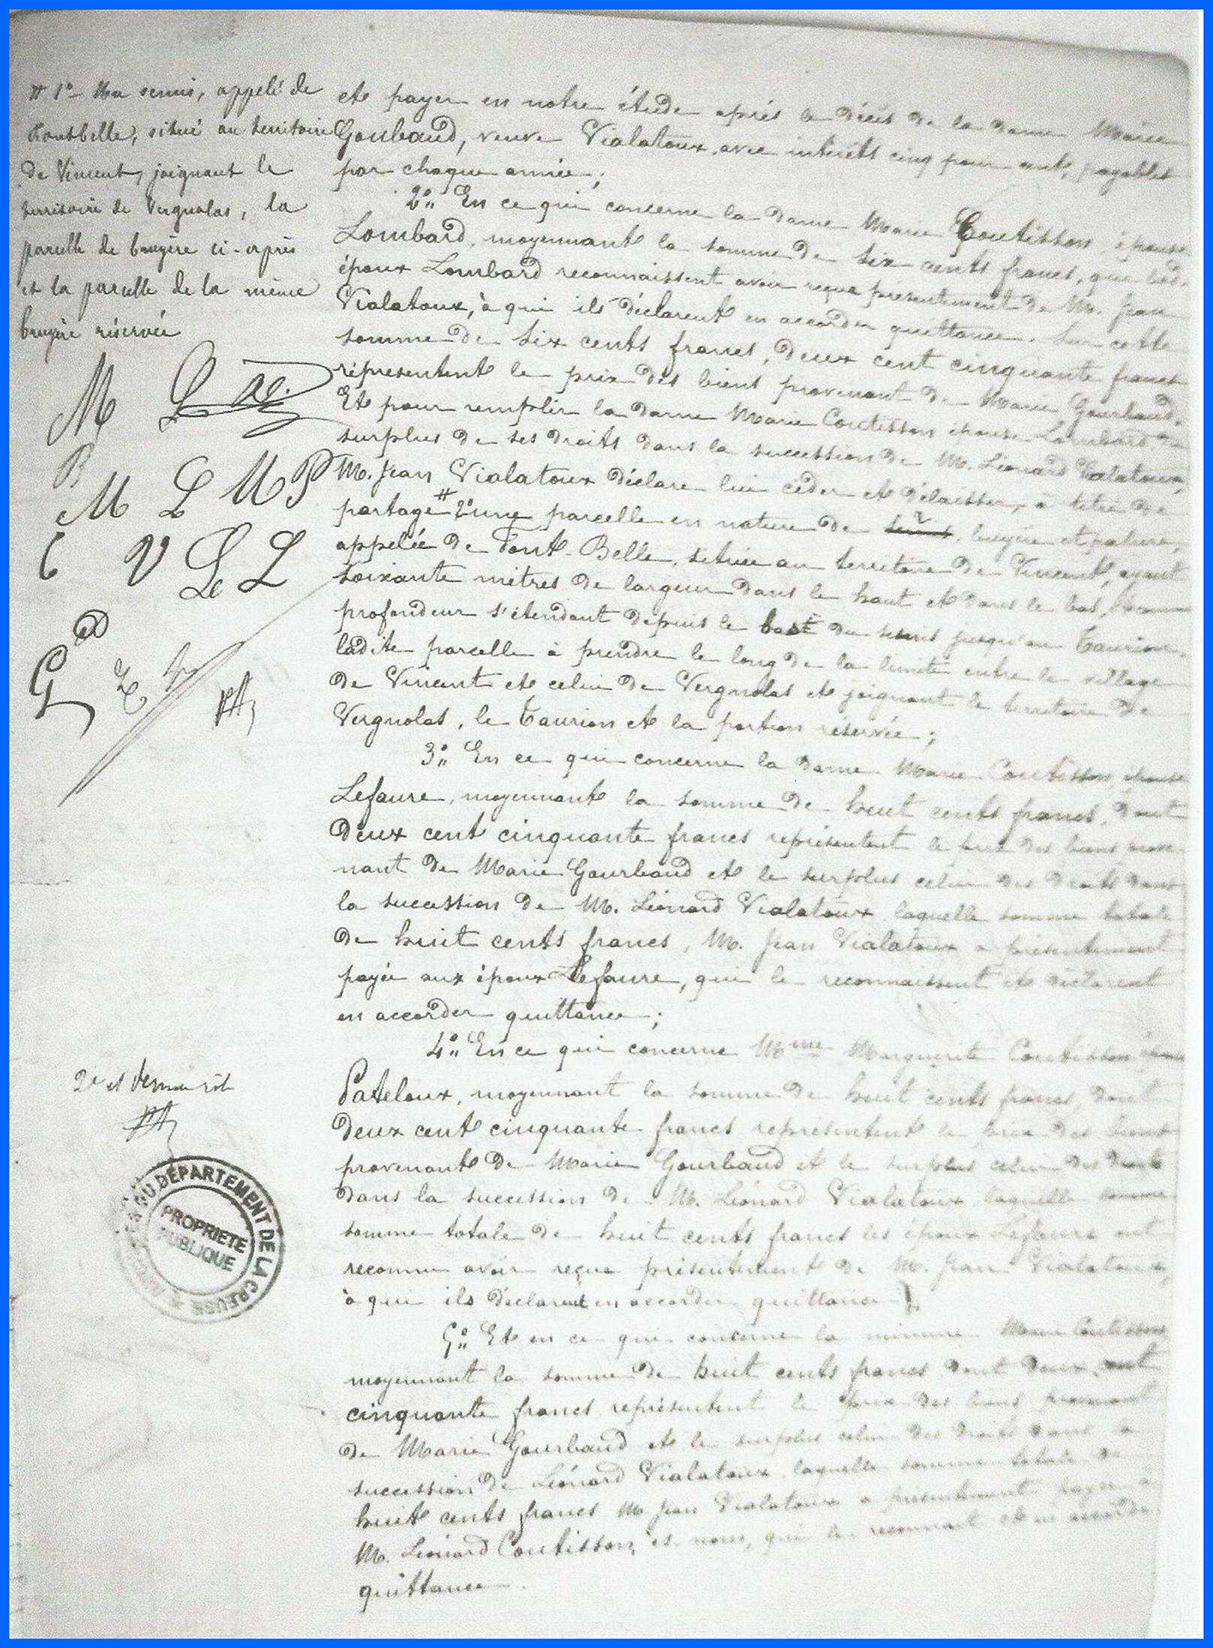 # 1º Un semis, appelé de
Fontbelle, situé au territoire
de Vincent, joignant le
territoire de Vergnolas, la
parcelle de bruyère ci-après
et la parcelle de la même
bruyère réservée
M
B
M L M P
C V L L
G
PA
et payer en notre étude après le décès de la dame Marie
Goubaud, veuve Vialatoux avec intérêts cinq pour cent, payables
par chaque année;
2º: En ce qui concerne la dame Marie Coutisson, épouse
Lombard, moyennant la somme de six cents francs, que les
époux Lombard reconnaissent avoir reçue présentement de M. Jean
Vialatoux, à qui ils déclarent en accorder quittance. Sur cette
somme de six cents francs, deux cent cinquante francs
représentent le prix des biens provenant de Marie Gourbaud.
Et pour remplir la dame Marie Coutisson épouse Lombard du
surplus de ses droits dans la succession de M. Léonard Vialatoux,
M. Jean Vialatoux déclare lui céder et délaisser, à titre de
partage # 2º une parcelle en nature de bruyère et pature,
appelée de Font-Belle, située au territoire de Vincent, ayant
soixante mètres de largeur dans le haut et dans le bas,
profondeur s'étendant depuis le bas du semis jusqu'au Taurion.
ladite parcelle à prendre le long de la limite entre le village
de Vincent et celui de Vergnolas et joignant le territoire de
Vergnolas, le Taurion et la portion réservée;
3º: En ce qui concerne la dame Marie Coutisson, épouse
Lefaure, moyennant la somme de huit cents francs, dont
deux cent cinquante francs représentent le prix des biens prove-
nant de Marie Gourbaud et le surplus celui des droits dans
la succession de M. Léonard Vialatoux laquelle somme totale
de huit cents francs, M. Jean Vialatoux a présentement
payée aux époux Lefaure, qui le reconnaissent et déclarent
en accorder quittance;
4º: En ce qui concerne Mme Marguerite Coutisson épouse
Pateloux, moyennant la somme de huit cents francs, dont
deux cent cinquante francs représentent le prix des biens
provenant de Marie Gourbaud et le surplus celui des droits
dans la succession de M. Léonard Vialatoux laquelle somme
somme totale de huit cents francs les époux Lefaure ont
reconnu avoir reçue présentement de M. Jean Vialatoux,
à qui ils déclarent en accorder quittance;
5º: Et en ce qui concerne la mineure Marie Coutisson
moyennant la somme de huit cents francs dont deux cent
cinquante francs représentent le prix des biens provenant
de Marie Gourbaud et le surplus celui des droits dans la
succession de Léonard Vialatoux laquelle somme totale de
huit cents francs M. Jean Vialatoux a présentement payée à
M. Léonard Coutisson, ès noms, qui le reconnait et en accorde
quittance.
2e et dernier rôle
PA
ARCHIVES DU DÉPARTEMENT DE LA CREUSE
PROPRIETE
PUBLIQUE